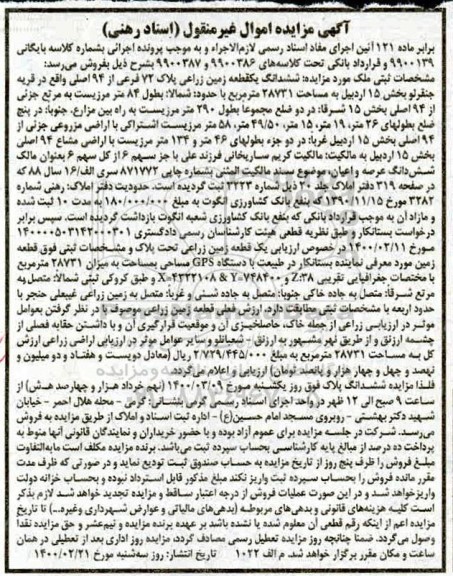 آگهی مزایده اموال غیرمنقول (اسناد رهنی)
برابر ماده ۱۲۱ آئین اجرای مفاد اسناد رسمی لازم‌الاجراء و به موجب پرونده اجرائی بشماره کلاسه بایگانی
۹۹۰۰۱۳۹ و قرارداد بانکی تحت کلاسه‌های ۹۹۰۰۳۸۶ و ۹۹۰۰۳۸۷ بشرح ذیل بفروش می‌رسد:
مشخصات ثبتی ملک مورد مزایده: ششدانگ یکقطعه زمین زراعی پلاک ۷۲ فرعی از ۹۴ اصلی واقع در قریه
جنقرلو بخش ۱۵ اردبیل به مساحت ۲۸۷۳۱ مترمربع با حدود: شمالا: بطول ۸۴ متر مرزیست به مرتع جزئی
از ۹۴ اصلی بخش ۱۵ شرقا: در دو ضلع مجموعا بطول ۲۹۰ متر مرزیست به راه بین مزارع. جنوبا: در پنج
ضلع بطولهای ۲۶ متر، ۱۹ متر، ۱۵ متر، ۴۹/۵۰ متر، ۵۸ متر مرزیست اشتراکی با اراضی مزروعی جزئی از
۹۴ اصلی بخش ۱۵ اردبیل غربا: در دو جزء بطولهای ۴۶ متر و ۱۳۴ متر مرزیست با اراضی مشاع ۹۴ اصلی
بخش ۱۵ اردبیل به مالکیت: مالکیت کریم ساریخانی فرزند علی با جز سهم ۶ از کل سهم ۶ بعنوان مالک
شش‌دانگ عرصه و اعیان، موضوع سند مالکیت المثنی بشماره چاپی ۸۷۱۷۷۲ سری الف/۱۶ سال ۸۸ که
در صفحه ۳۱۹ دفتر املاک جلد ۲۰ ذیل شماره ۳۲۲۳ ثبت گردیده است. حدودیت دفتر املاک: رهنی شماره
۳۳۸۲ مورخ ۱۳۹۰/۱۱/۱۵ که بنفع بانک کشاورزی آنگوت به مبلغ ۱۸۰/۰۰۰/۰۰۰ به مدت ۱۰ ثبت شده
و مازاد آن به موجب قرارداد بانکی که بنفع بانک کشاورزی شعبه انگوت بازداشت گردیده است. سپس برابر
درخواست بستانکار و طبق نظریه قطعی هیئت کارشناسان رسمی دادگستری ۱۴۰۰۰۰۵۰۳۱۴۲۰۰۰۳۰۱
مورخ ۱۴۰۰/۰۲/۱۱ در خصوص ارزیابی یک قطعه زمین زراعی تحت پلاک و مشخصات ثبتی فوق قطعه
زمین مورد معرفی نماینده بستانکار در طبیعت با دستگاه GPS مساحی بمساحت به میزان ۲۸۷۳۱ مترمربع
با مختصات جغرافیایی تقریبی Z:38 و X=4332108 & Y=748400 و طبق کروکی ثبتی شمالا: متصل به
مرتع شرقا: متصل به جاده خاکی جنوبا: متصل به جاده شنی و غربا: متصل به زمین زراعی غیبعلی حنجر با
حدود اربعه با مشخصات ثبتی مطابقت دارد. ارزش فعلی قطعه زمین زراعی موصوف با در نظر گرفتن بعوامل
موثر در ارزیابی زراعی از جمله خاک، حاصلخیزی آن و موقعیت قرارگیری آن و با داشتن حقابه فصلی از
چشمه ارزنق و از طریق نهر مشهور به ارزنق - شعبانلو و سایر عوامل موثر در ارزیابی اراضی زراعی ارزش
کل به مساحت ۲۸۷۳۱ مترمربع به مبلغ ۲/۷۲۹/۴۴۵/۰۰۰ ریال (معادل دویست و هفتاد و دو میلیون و
نهصد و چهل و چهار هزار و پانصد تومان) ارزیابی و اعلام می‌گردد.
فلذا مزایده ششدانگ پلاک فوق روز یکشنبه مورخ ۱۴۰۰/۰۳/۰۹ (نهم خرداد هزار و چهارصد هـ.ش) از
ساعت ۹ صبح الی ۱۲ ظهر در واحد اجرای اسناد رسمی گرمی بنشانی: گرمی - محله هلال احمر - خیابان
شهید دکتر بهشتی - روبروی مسجد امام حسین(ع) - اداره ثبت اسناد و املاک از طریق مزایده به فروش
می‌رسد. شرکت در جلسه مزایده برای عموم آزاد بوده و با حضور خریداران و نمایندگان قانونی آنها منوط به
پرداخت ده درصد از مبالغ پایه کارشناسی بحساب سپرده ثبت می‌باشد. برنده مزایده مکلف است مابه‌التفاوت
مبلغ فروش را ظرف پنج روز از تاریخ مزایده به حساب صندوق ثبت تودیع نماید و در صورتی که ظرف مدت
مقرر مانده فروش را بحساب سپرده ثبت واریز نکند مبلغ مذکور قابل استرداد نبوده و بحساب خزانه دولت
واریز خواهد شد و در این صورت عملیات فروش از درجه اعتبار ساقط و مزایده تجدید خواهد شد لازم بذکر
است کلیه هزینه‌های قانونی و بدهی‌های مربوطه (بدهی‌های مالیاتی و عوارض شهرداری وغیره...) تا تاریخ
مزایده اعم از اینکه رقم قطعی آن معلوم شده یا نشده باشد بر عهده برنده مزایده و نیم‌عشر و حق مزایده نقدا
وصول می‌گردد. ضمنا چنانچه روز مزایده تعطیل رسمی مصادف گردد، مزایده روز اداری بعد از تعطیلی در همان
ساعت و مکان مقرر برگزار خواهد شد. م الف ۱۰۲۲ تاریخ انتشار: روز سه‌شنبه مورخ ۱۴۰۰/۰۲/۲۱